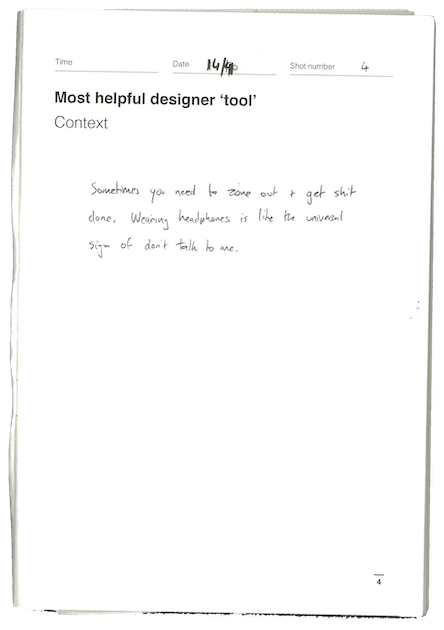 Time Date 14/ Shot number 4
Most helpful designer ‘tool’
Context
Sometimes you need to zone out + get shit
done. Wearing headphones is like the universal
sign of don't talk to me.
4